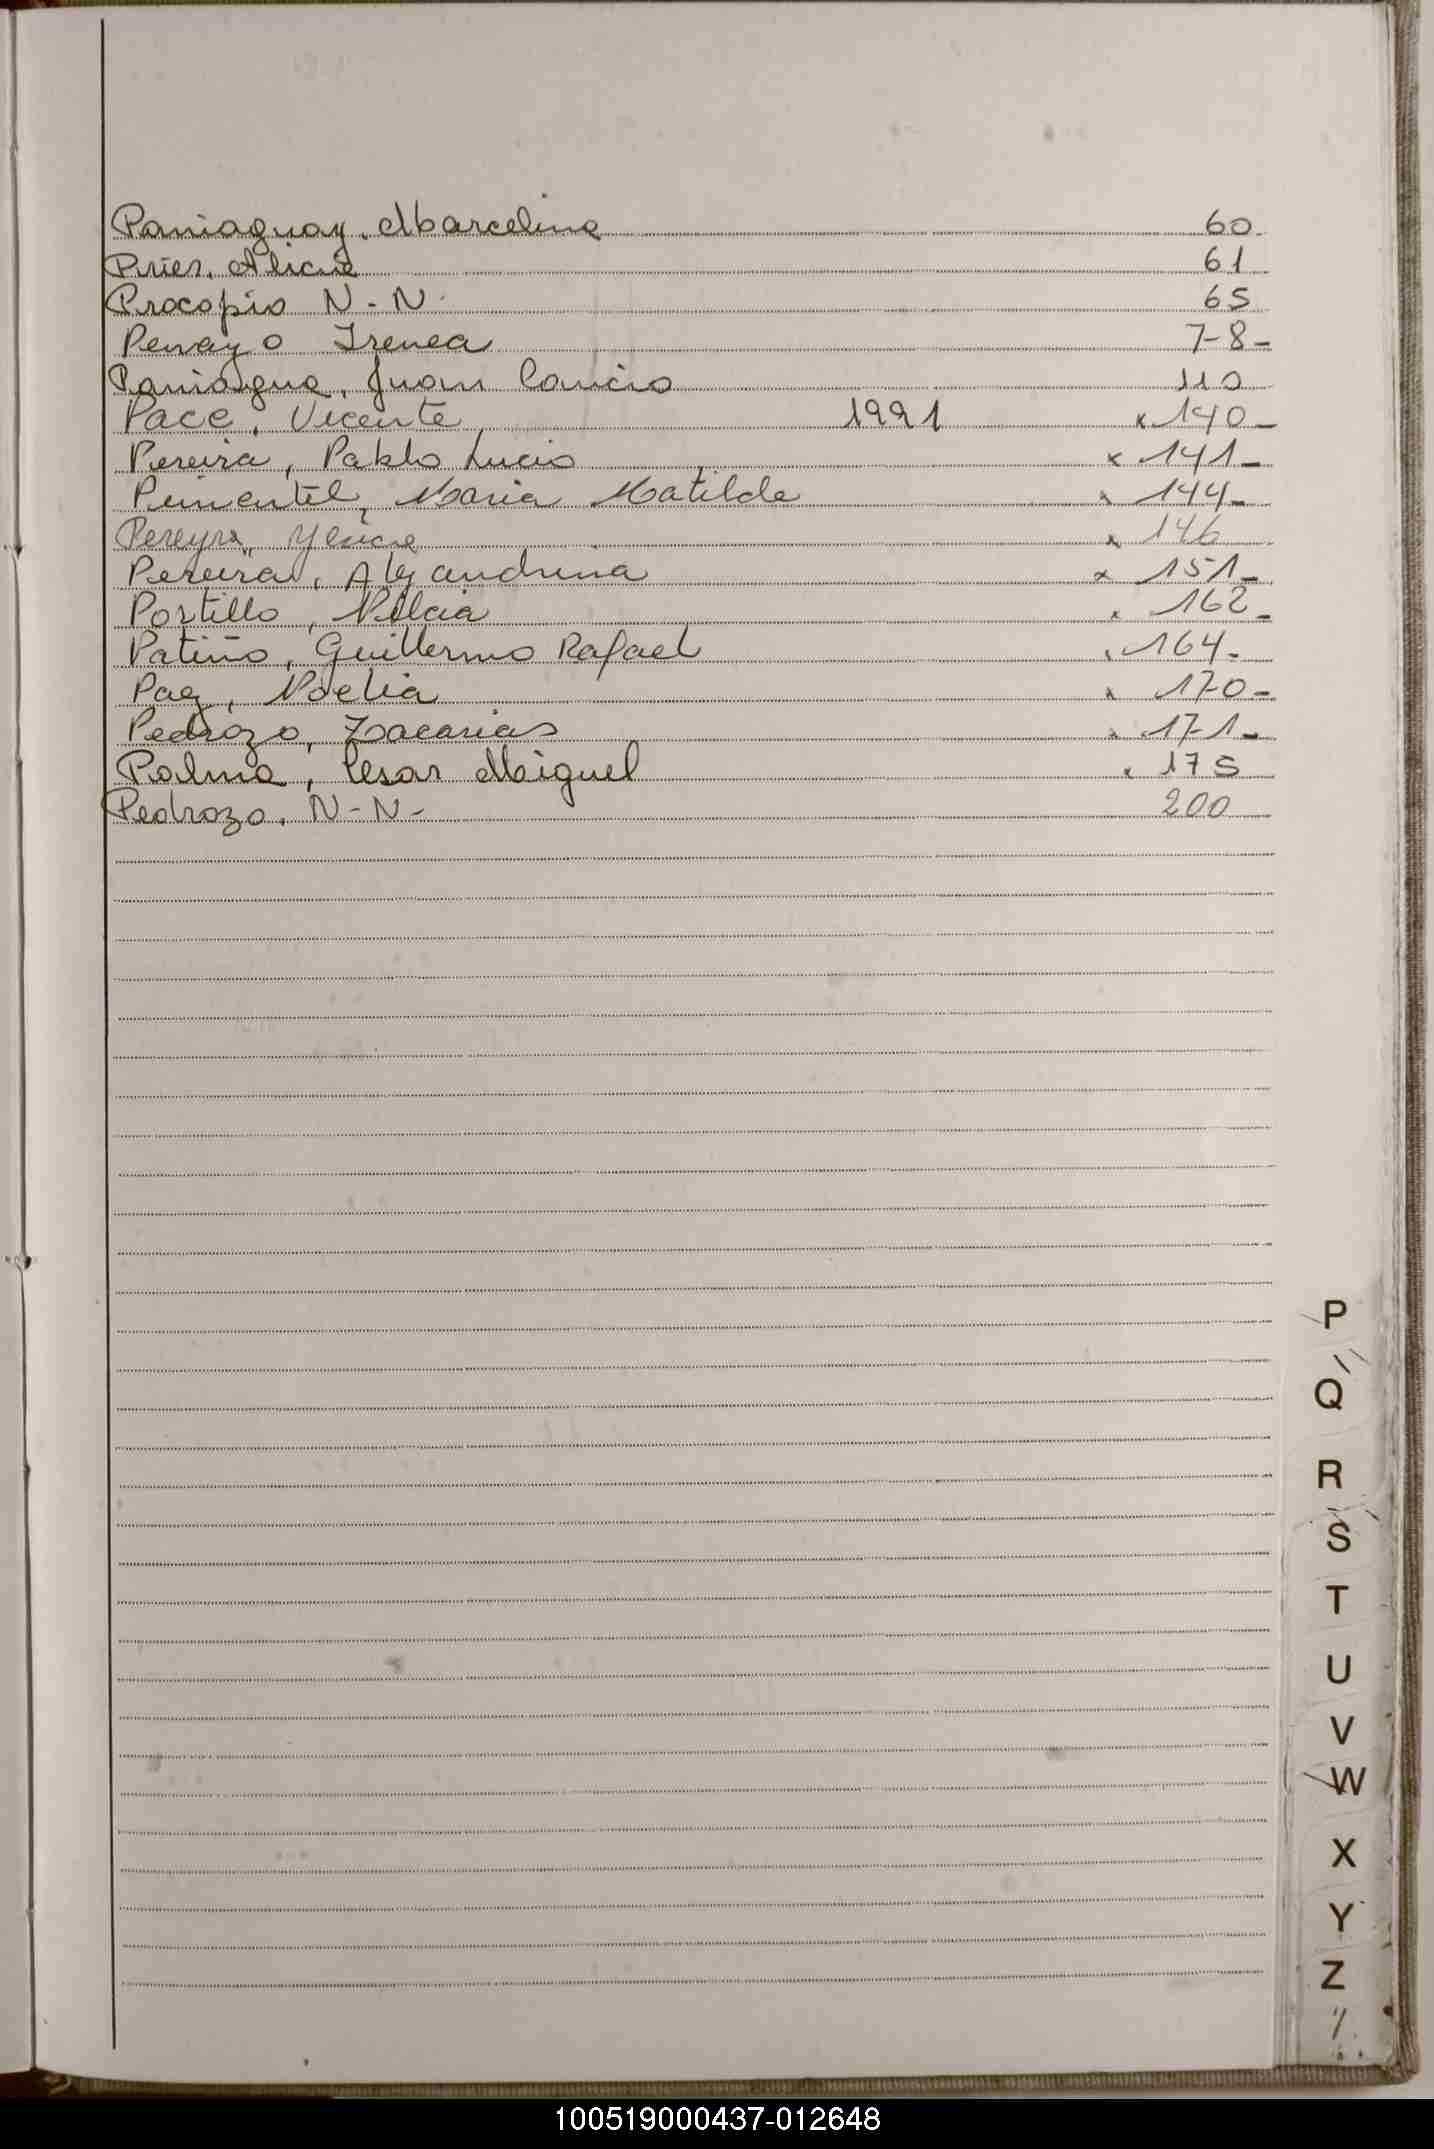 Paniaguay, Marcelina 60
Piries, Alicia 61
Procopio N-N- 65
Penayo Irenea 78-
Paniagua, Juan Cancio 110
Pace, Vicente 1991 x 140-
Pereira, Pablo Lucio x 141-
Pimentel, Maria Matilde x 144-
Pereyra, Yesica x 146
Pereira, Alejandrina x 151-
Portillo, Nilcia x 162-
Patiño, Guillermo Rafael 164-
Paez, Noelia x 170-
Pedrozo, Zacarias x 171-
Palma, Cesar Miguel x 175
Pedrozo, N-N- 200
P
Q
R
S
T
U
V
W
X
Y
Z
100519000437-012648